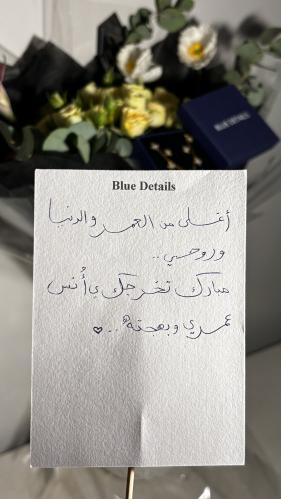 BLUE DETAILS
Blue Details
أغلى من العمر والدنيا
وروحي ..
مبارك تخرجك ي أُنس
عمري وبهجته .. ♥